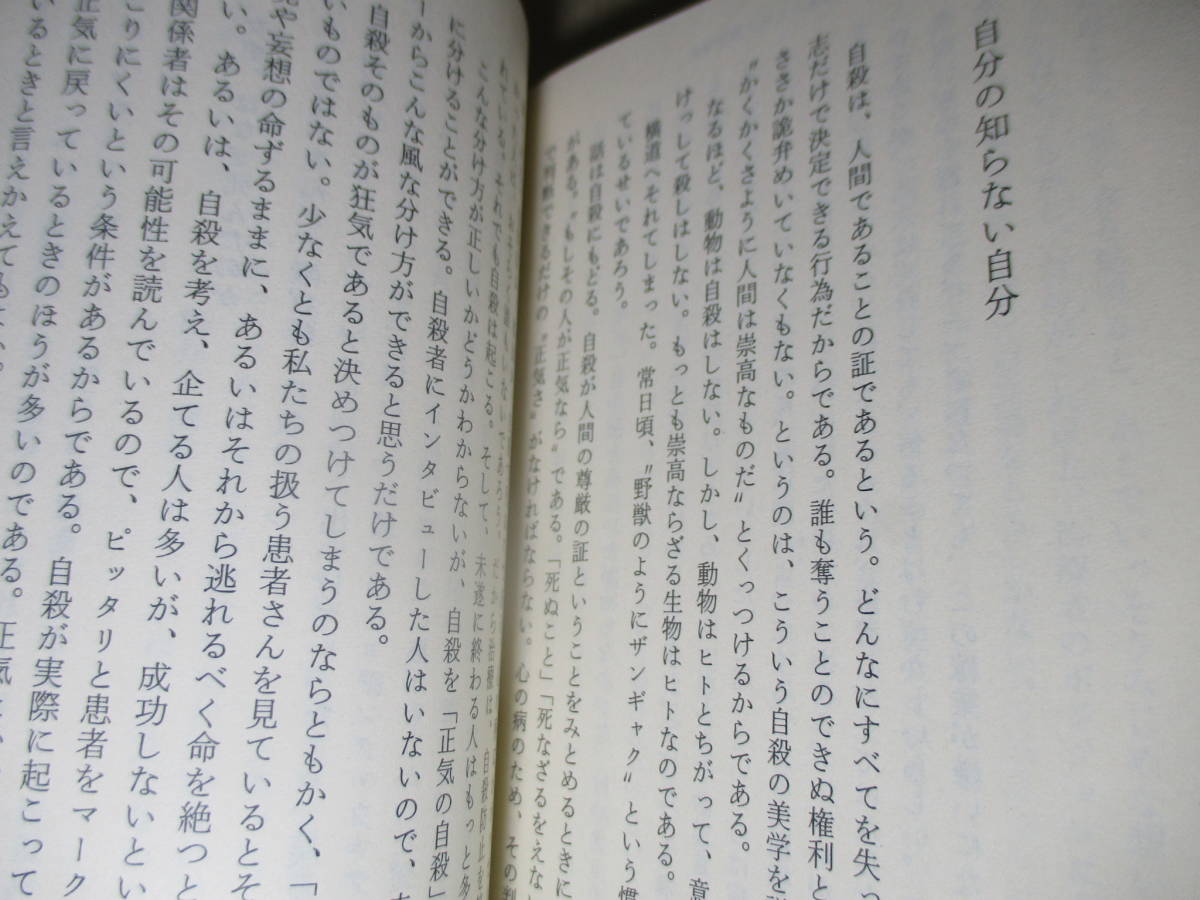 自分の知らない自分
自殺は、人間であることの証であるという。どんなにすべてを失っ
志だけで決定できる行為だからである。誰も奪うことのできぬ権利と
ささか詭弁めいていなくもない。というのは、こういう自殺の美学を
〝かくかくさように人間は崇高なものだ〟とくっつけるからである。
なるほど、動物は自殺はしない。しかし、動物はヒトとちがって、意
けっして殺しはしない。もっとも崇高ならざる生物はヒトなのである。
横道へそれてしまった。常日頃、〝野獣のようにザンギャク〟という慣
ているせいであろう。
話は自殺にもどる。自殺が人間の尊厳の証ということをみとめるときに
がある。〝もしその人が正気なら〟である。「死ぬこと」「死なざるをえな
で判断できるだけの〝正気さ〟がなければならない。心の病のため、その判
れている。それでも自殺は起こる。そして、未遂に終わる人はもっと多
こんな分け方が正しいかどうかわからないが、自殺を「正気の自殺」
に分けることができる。自殺者にインタビューした人はいないので、
ーからこんな風な分け方ができると思うだけである。
自殺そのものが狂気であると決めつけてしまうのならともかく、「
いものではない。少なくとも私たちの扱う患者さんを見ているとそ
や妄想の命ずるままに、あるいはそれから逃れるべく命を絶つと
い。あるいは、自殺を考え、企てる人は多いが、成功しないとい
関係者はその可能性を読んでいるので、ピッタリと患者をマーク
こりにくいという条件があるからである。自殺が実際に起こって
正気に戻っているときのほうが多いのである。正気
いるときと言えかえても